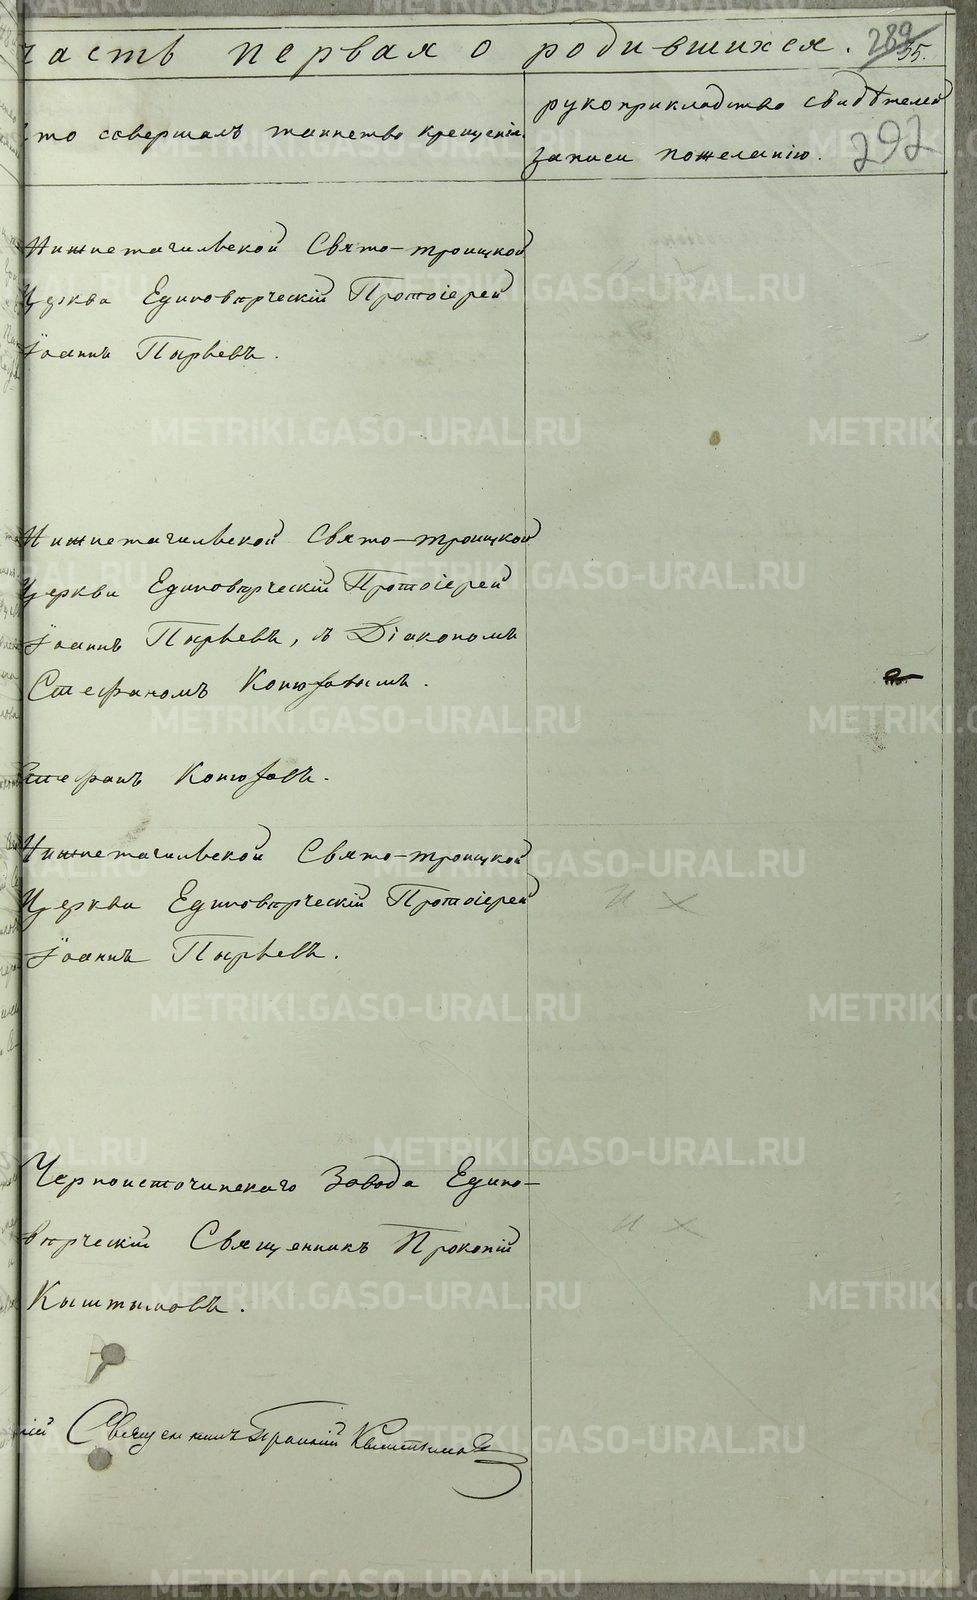 часть первая о родившихся. 289 35.
кто совершалъ таинство крещенія.
рукоприкладство свидѣтелей
записи пожеланію. 292
Нижнетагильской Свято-троицкой
Церкви Единовѣрческій Протоіерей
Іоаннъ Пырьевъ.
Нижнетагильской Свято-троицкой
Церкви Единовѣрческій Протоіерей
Іоаннъ Пырьевъ, съ Діакономъ
Стефаномъ Конюховымъ.
Стефанъ Конюховъ.
Нижнетагильской Свято-троицкой
Церкви Единовѣрческій Протоіерей
Іоаннъ Пырьевъ.
и х
Черноисточинскаго Завода Едино-
вѣрческій Священникъ Прокопій
Кыштымовъ.
и х
Священникъ Прокопій Кыштымовъ
METRIKI.GASO-URAL.RU